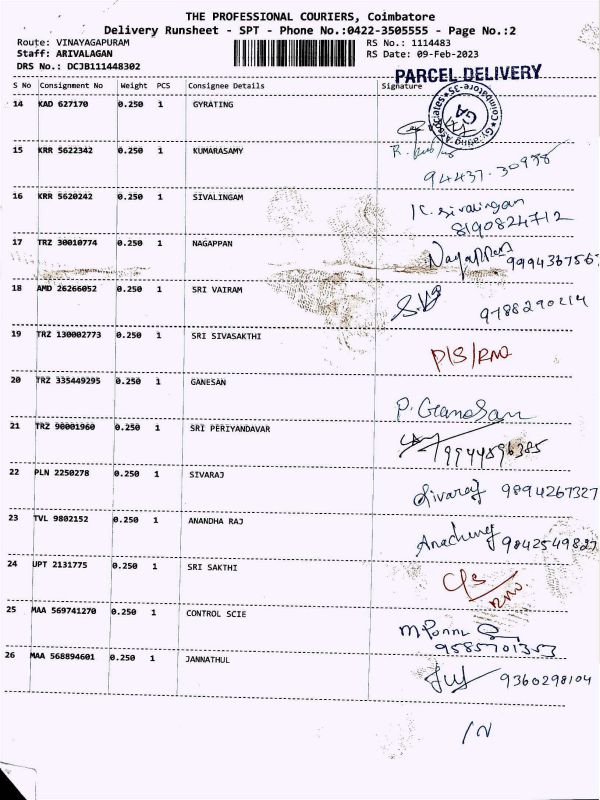 THE PROFESSIONAL COURIERS, Coimbatore
Delivery Runsheet - SPT - Phone No.:0422-3505555 - Page No.:2
Route: VINAYAGAPURAM RS No.: 1114483
Staff: ARIVALAGAN RS Date: 09-Feb-2023
DRS No.: DCJB111448302
PARCEL DELIVERY
S No Consignment No Weight PCS Consignee Details Signature
14 KAD 627170 0.250 1 GYRATING
Gyrating Associates Coimbatore-35
GA
15 KRR 5622342 0.250 1 KUMARASAMY
94437-30938
16 KRR 5620242 0.250 1 SIVALINGAM K. Sivalingan
8190824712
17 TRZ 30010774 0.250 1 NAGAPPAN Nagappan 999436756
18 AMD 26266052 0.250 1 SRI VAIRAM
9788290214
19 TRZ 130002773 0.250 1 SRI SIVASAKTHI
20 TRZ 335449295 0.250 1 GANESAN
P. Ganesan
21 TRZ 90001960 0.250 1 SRI PERIYANDAVAR
9944896385
22 PLN 2250278 0.250 1 SIVARAJ
Sivaraj 9894267327
23 TVL 9802152 0.250 1 ANANDHA RAJ
9842549827
24 UPT 2131775 0.250 1 SRI SAKTHI
25 MAA 569741270 0.250 1 CONTROL SCIE
9585701353
26 MAA 568894601 0.250 1 JANNATHUL
9360298104